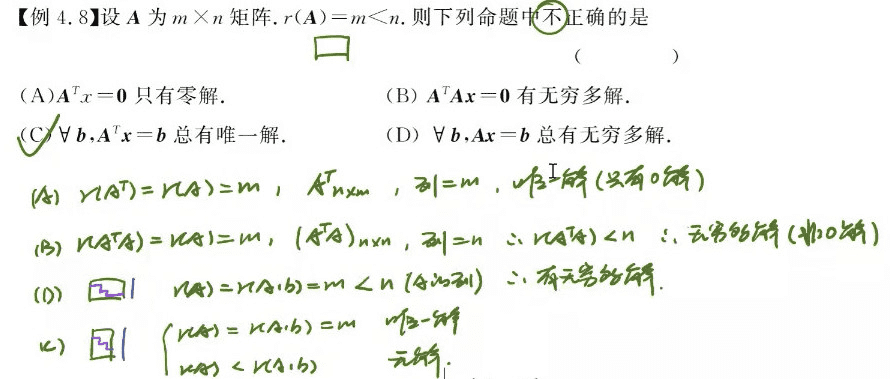 【例 4.8】设 A 为 m×n 矩阵.r(A)=m<n.则下列命题中不正确的是
(    )
(A)Aᵀx=0 只有零解. (B) AᵀAx=0 有无穷多解.
(C)∀b,Aᵀx=b 总有唯一解. (D) ∀b,Ax=b 总有无穷多解.
(A) r(Aᵀ)=r(A)=m, Aᵀn×m, 列=m, 唯一解(只有0解)
(B) r(AᵀA)=r(A)=m, (AᵀA)n×n, 列=n ∴ r(AᵀA)<n ∴ 无穷多解(非0解)
(D) r(A)=r(A,b)=m<n (A的列) ∴ 有无穷多解.
(C) { r(A)=r(A,b)=m 唯一解
r(A)<r(A,b) 无解.